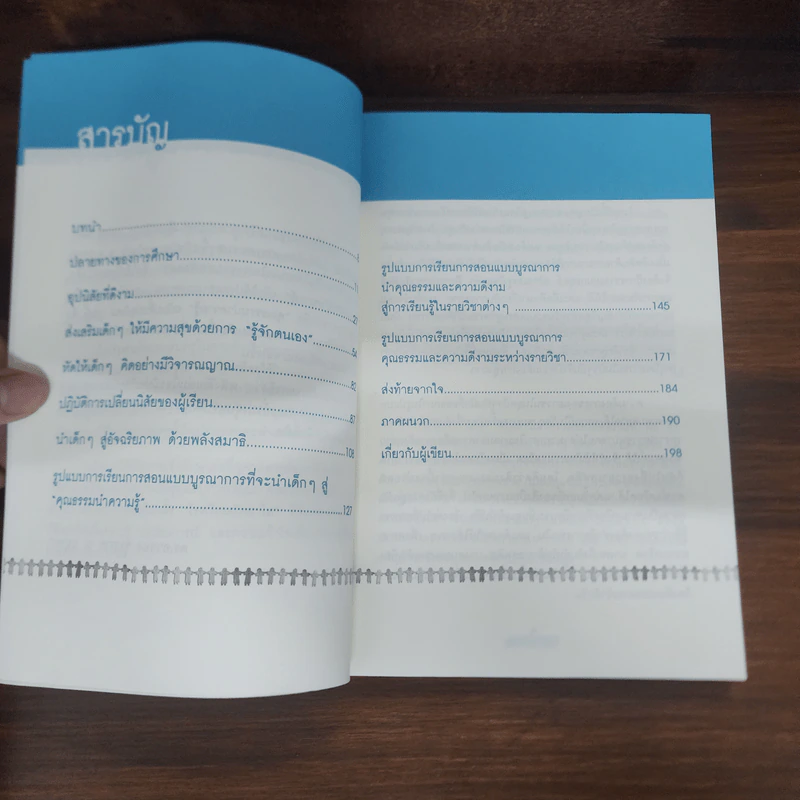 สารบัญ
บทนำ
ปลายทางของการศึกษา
อุปนิสัยที่ดีงาม
ส่งเสริมเด็กๆ ให้มีความสุขด้วยการ "รู้จักตนเอง"
หัดให้เด็กๆ คิดอย่างมีวิจารณญาณ 82
ปฏิบัติการเปลี่ยนนิสัยของผู้เรียน 87
นำเด็กๆ สู่อัจฉริยภาพ ด้วยพลังสมาธิ 108
รูปแบบการเรียนการสอนแบบบูรณาการที่จะนำเด็กๆ สู่
"คุณธรรมนำความรู้" 127
รูปแบบการเรียนการสอนแบบบูรณาการ
นำคุณธรรมและความดีงาม
สู่การเรียนรู้ในรายวิชาต่างๆ 145
รูปแบบการเรียนการสอนแบบบูรณาการ
คุณธรรมและความดีงามระหว่างรายวิชา 171
ส่งท้ายจากใจ 184
ภาคผนวก 190
เกี่ยวกับผู้เขียน 198